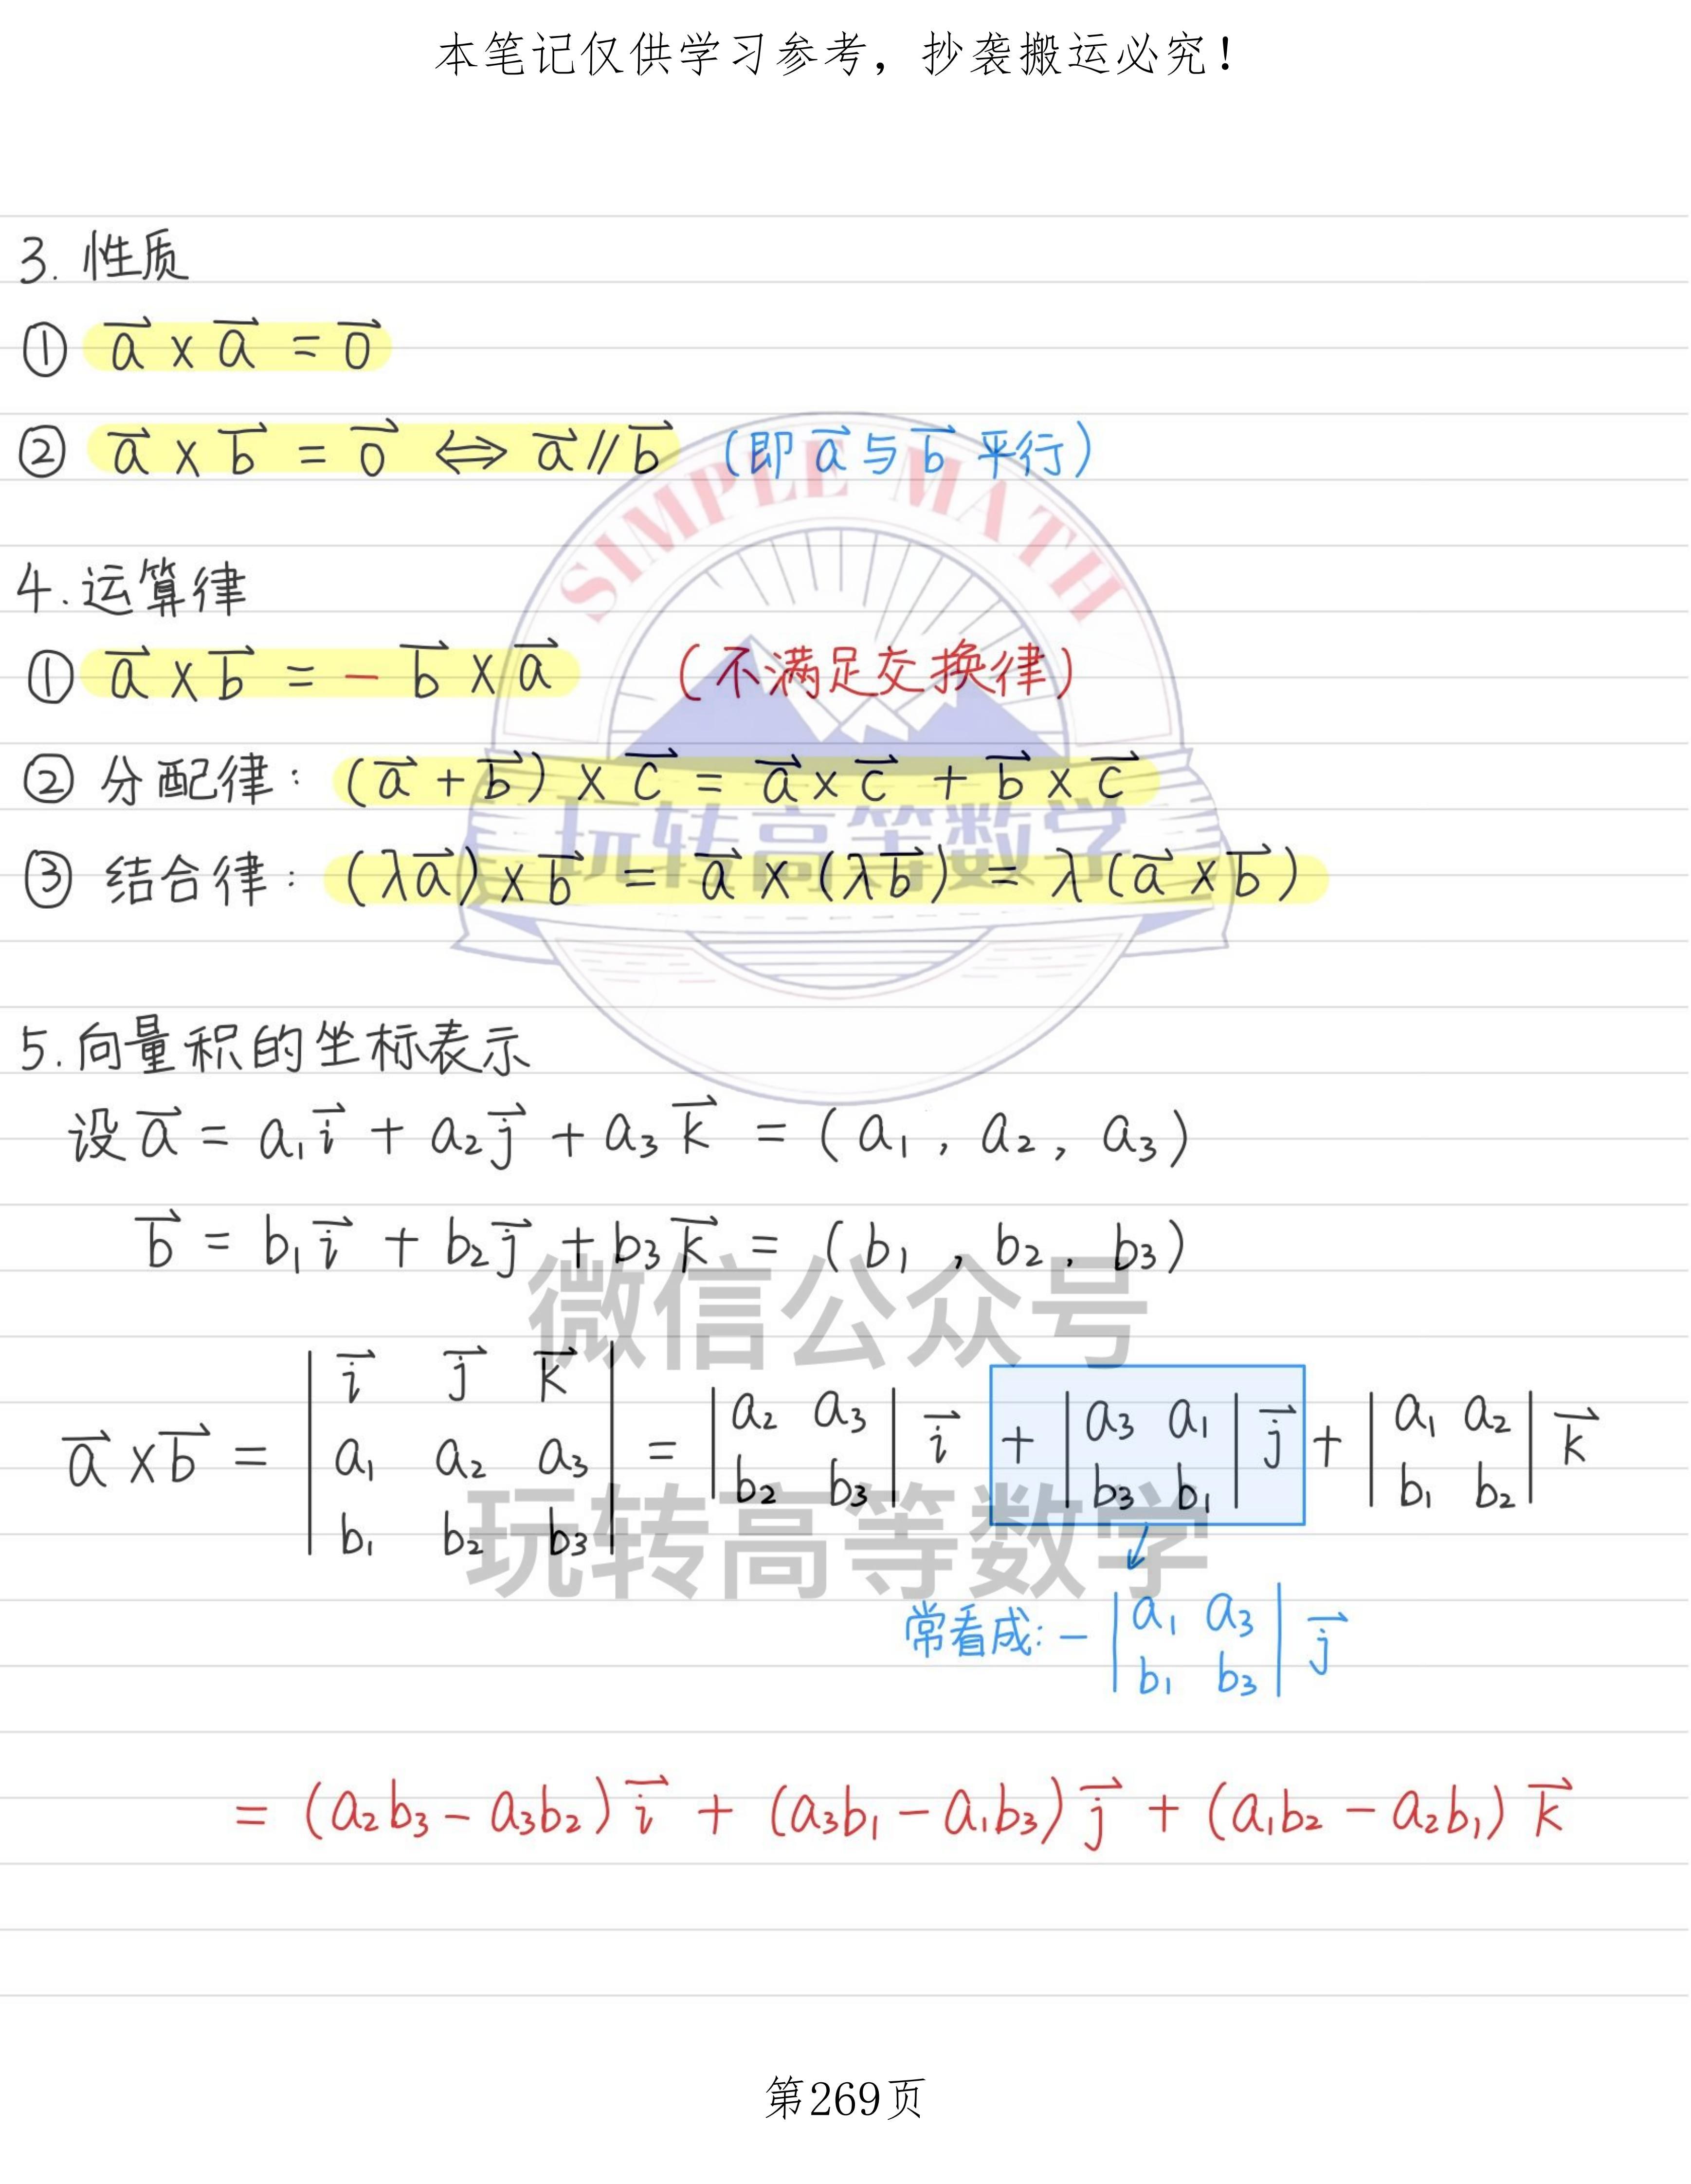 本笔记仅供学习参考，抄袭搬运必究！
3. 性质
① a⃗ × a⃗ = 0⃗
② a⃗ × b⃗ = 0⃗ ⟺ a⃗ // b⃗ (即 a⃗ 与 b⃗ 平行)
SIMPLE MATH
4. 运算律
① a⃗ × b⃗ = - b⃗ × a⃗ (不满足交换律)
② 分配律: (a⃗ + b⃗) × c⃗ = a⃗ × c⃗ + b⃗ × c⃗
玩转高等数学
③ 结合律: (λa⃗) × b⃗ = a⃗ × (λb⃗) = λ(a⃗ × b⃗)
5. 向量积的坐标表示
设 a⃗ = a₁i⃗ + a₂j⃗ + a₃k⃗ = (a₁, a₂, a₃)
b⃗ = b₁i⃗ + b₂j⃗ + b₃k⃗ = (b₁, b₂, b₃)
微信公众号
a⃗ × b⃗ = | i⃗ j⃗ k⃗ ; a₁ a₂ a₃ ; b₁ b₂ b₃ | = | a₂ a₃ ; b₂ b₃ | i⃗ + | a₃ a₁ ; b₃ b₁ | j⃗ + | a₁ a₂ ; b₁ b₂ | k⃗
玩转高等数学
常看成: - | a₁ a₃ ; b₁ b₃ | j⃗
= (a₂b₃ - a₃b₂) i⃗ + (a₃b₁ - a₁b₃) j⃗ + (a₁b₂ - a₂b₁) k⃗
第269页